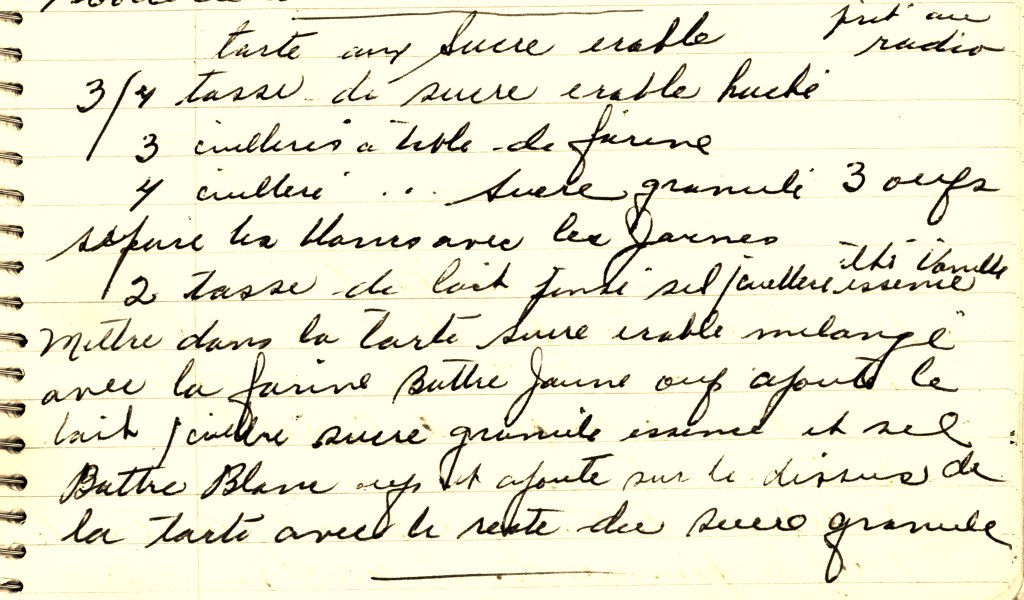 tarte aux sucre erable
prit au
radio
3/4 tasse de sucre erable haché
3 cuilleres a table de farine
4 cuillere . . . sucre granulé 3 oeufs
separe les blancs avec les jaunes
2 tasse de lait pincé sel 1 cuillere thé vanille
essence
Mettre dans la tarte sucre erable melangé
avec la farine Battre Jaune oeuf ajoute le
lait 1 cuillré sucre granulé essence et sel
Battre Blanc oeuf et ajoute sur le dessus de
la tarte avec le reste du sucre granule